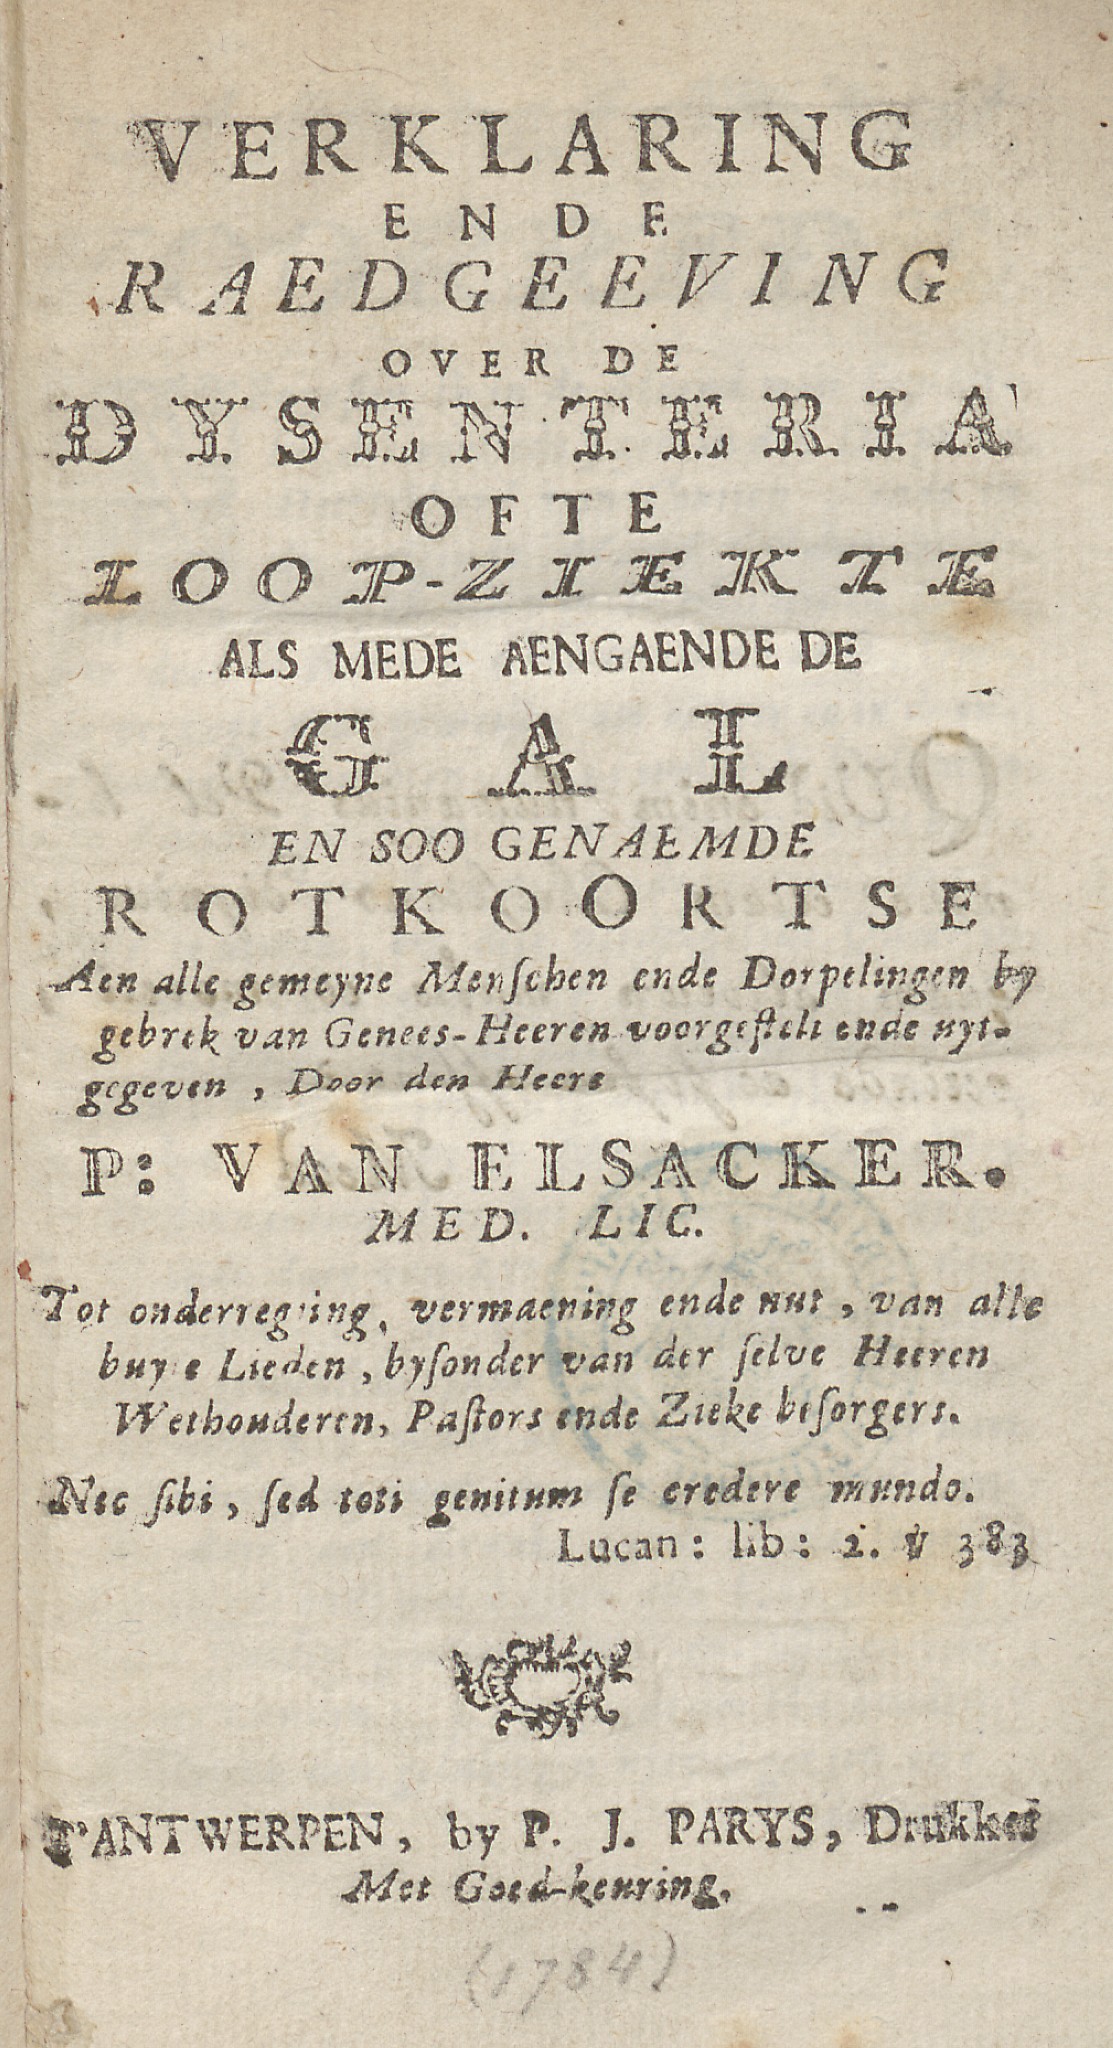 VERKLARING
ENDE
RAEDGEEVING
OVER DE
DYSENTERIA
OFTE
LOOP-ZIEKTE
ALS MEDE AENGAENDE DE
GAL
EN SOO GENAEMDE
ROTKOORTSE
Aen alle gemeyne Menſchen ende Dorpelingen by
gebrek van Genees-Heeren voorgeſtelt ende uyt-
gegeven, Door den Heere
P: VAN ELSACKER.
MED. LIC.
Tot onderregting, vermaening ende nut, van alle
Lieden, byſonder van der ſelve Heeren
Wethouderen, Paſtors ende Zieke beſorgers.
Nec ſibi, ſed toti genitum ſe credere mundo.
Lucan: lib: 2. v 383
T'ANTWERPEN, by P. J. PARYS, Drukker
Met Goed-keuring.
(1784)